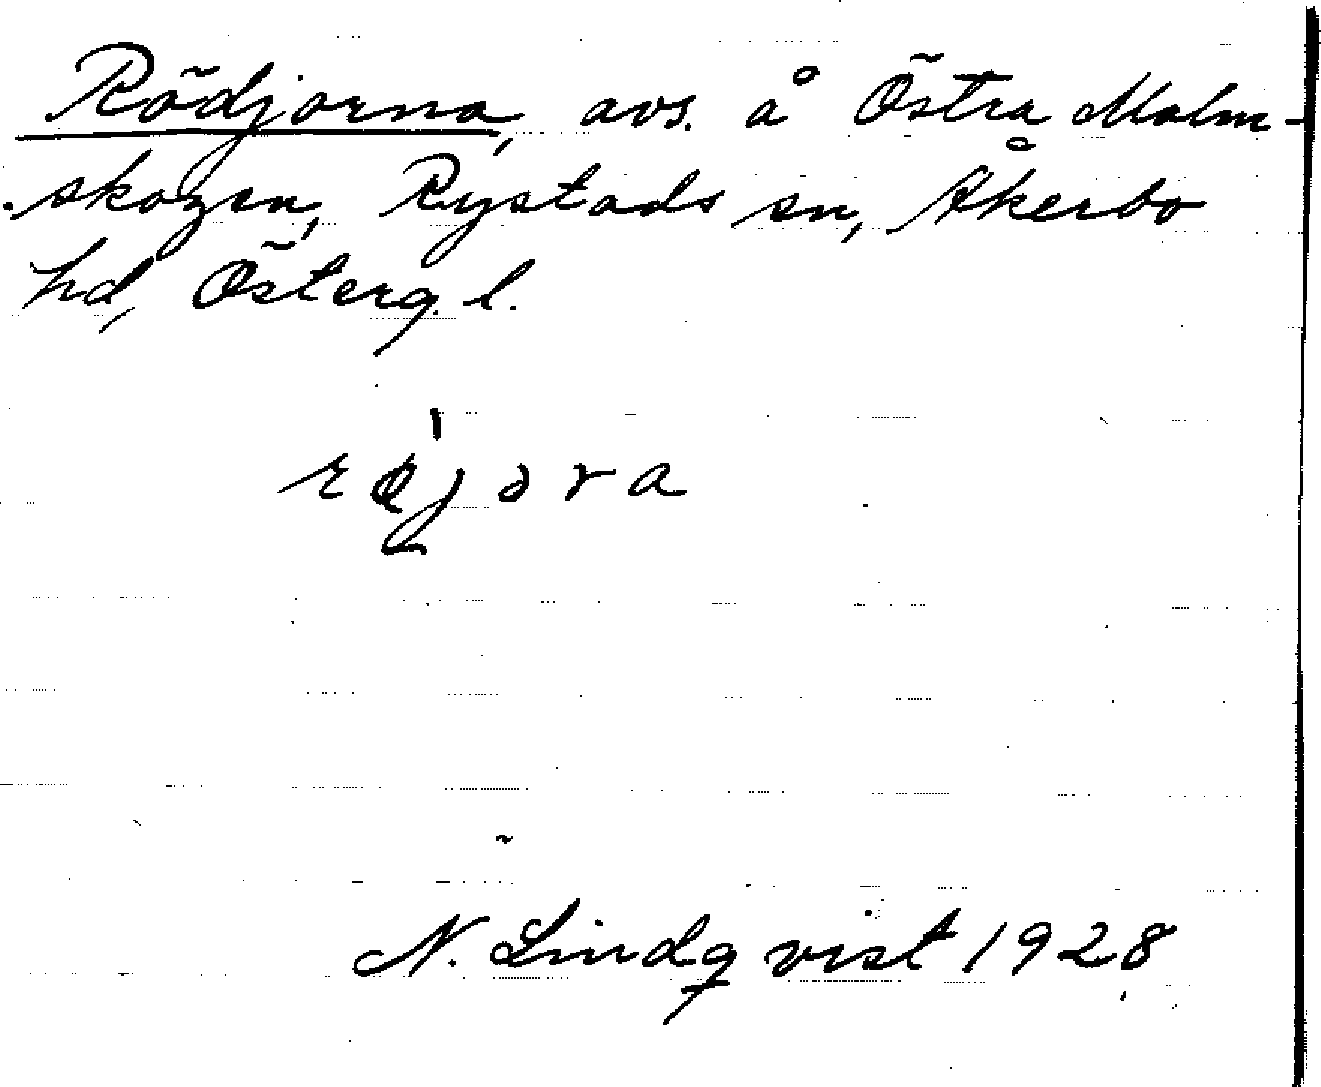 Rödjorna, avs. å Östra Malm-
skogen, Rystads sn, Åkerbo
hd, Österg. l.
røjora
N. Lindqvist 1928